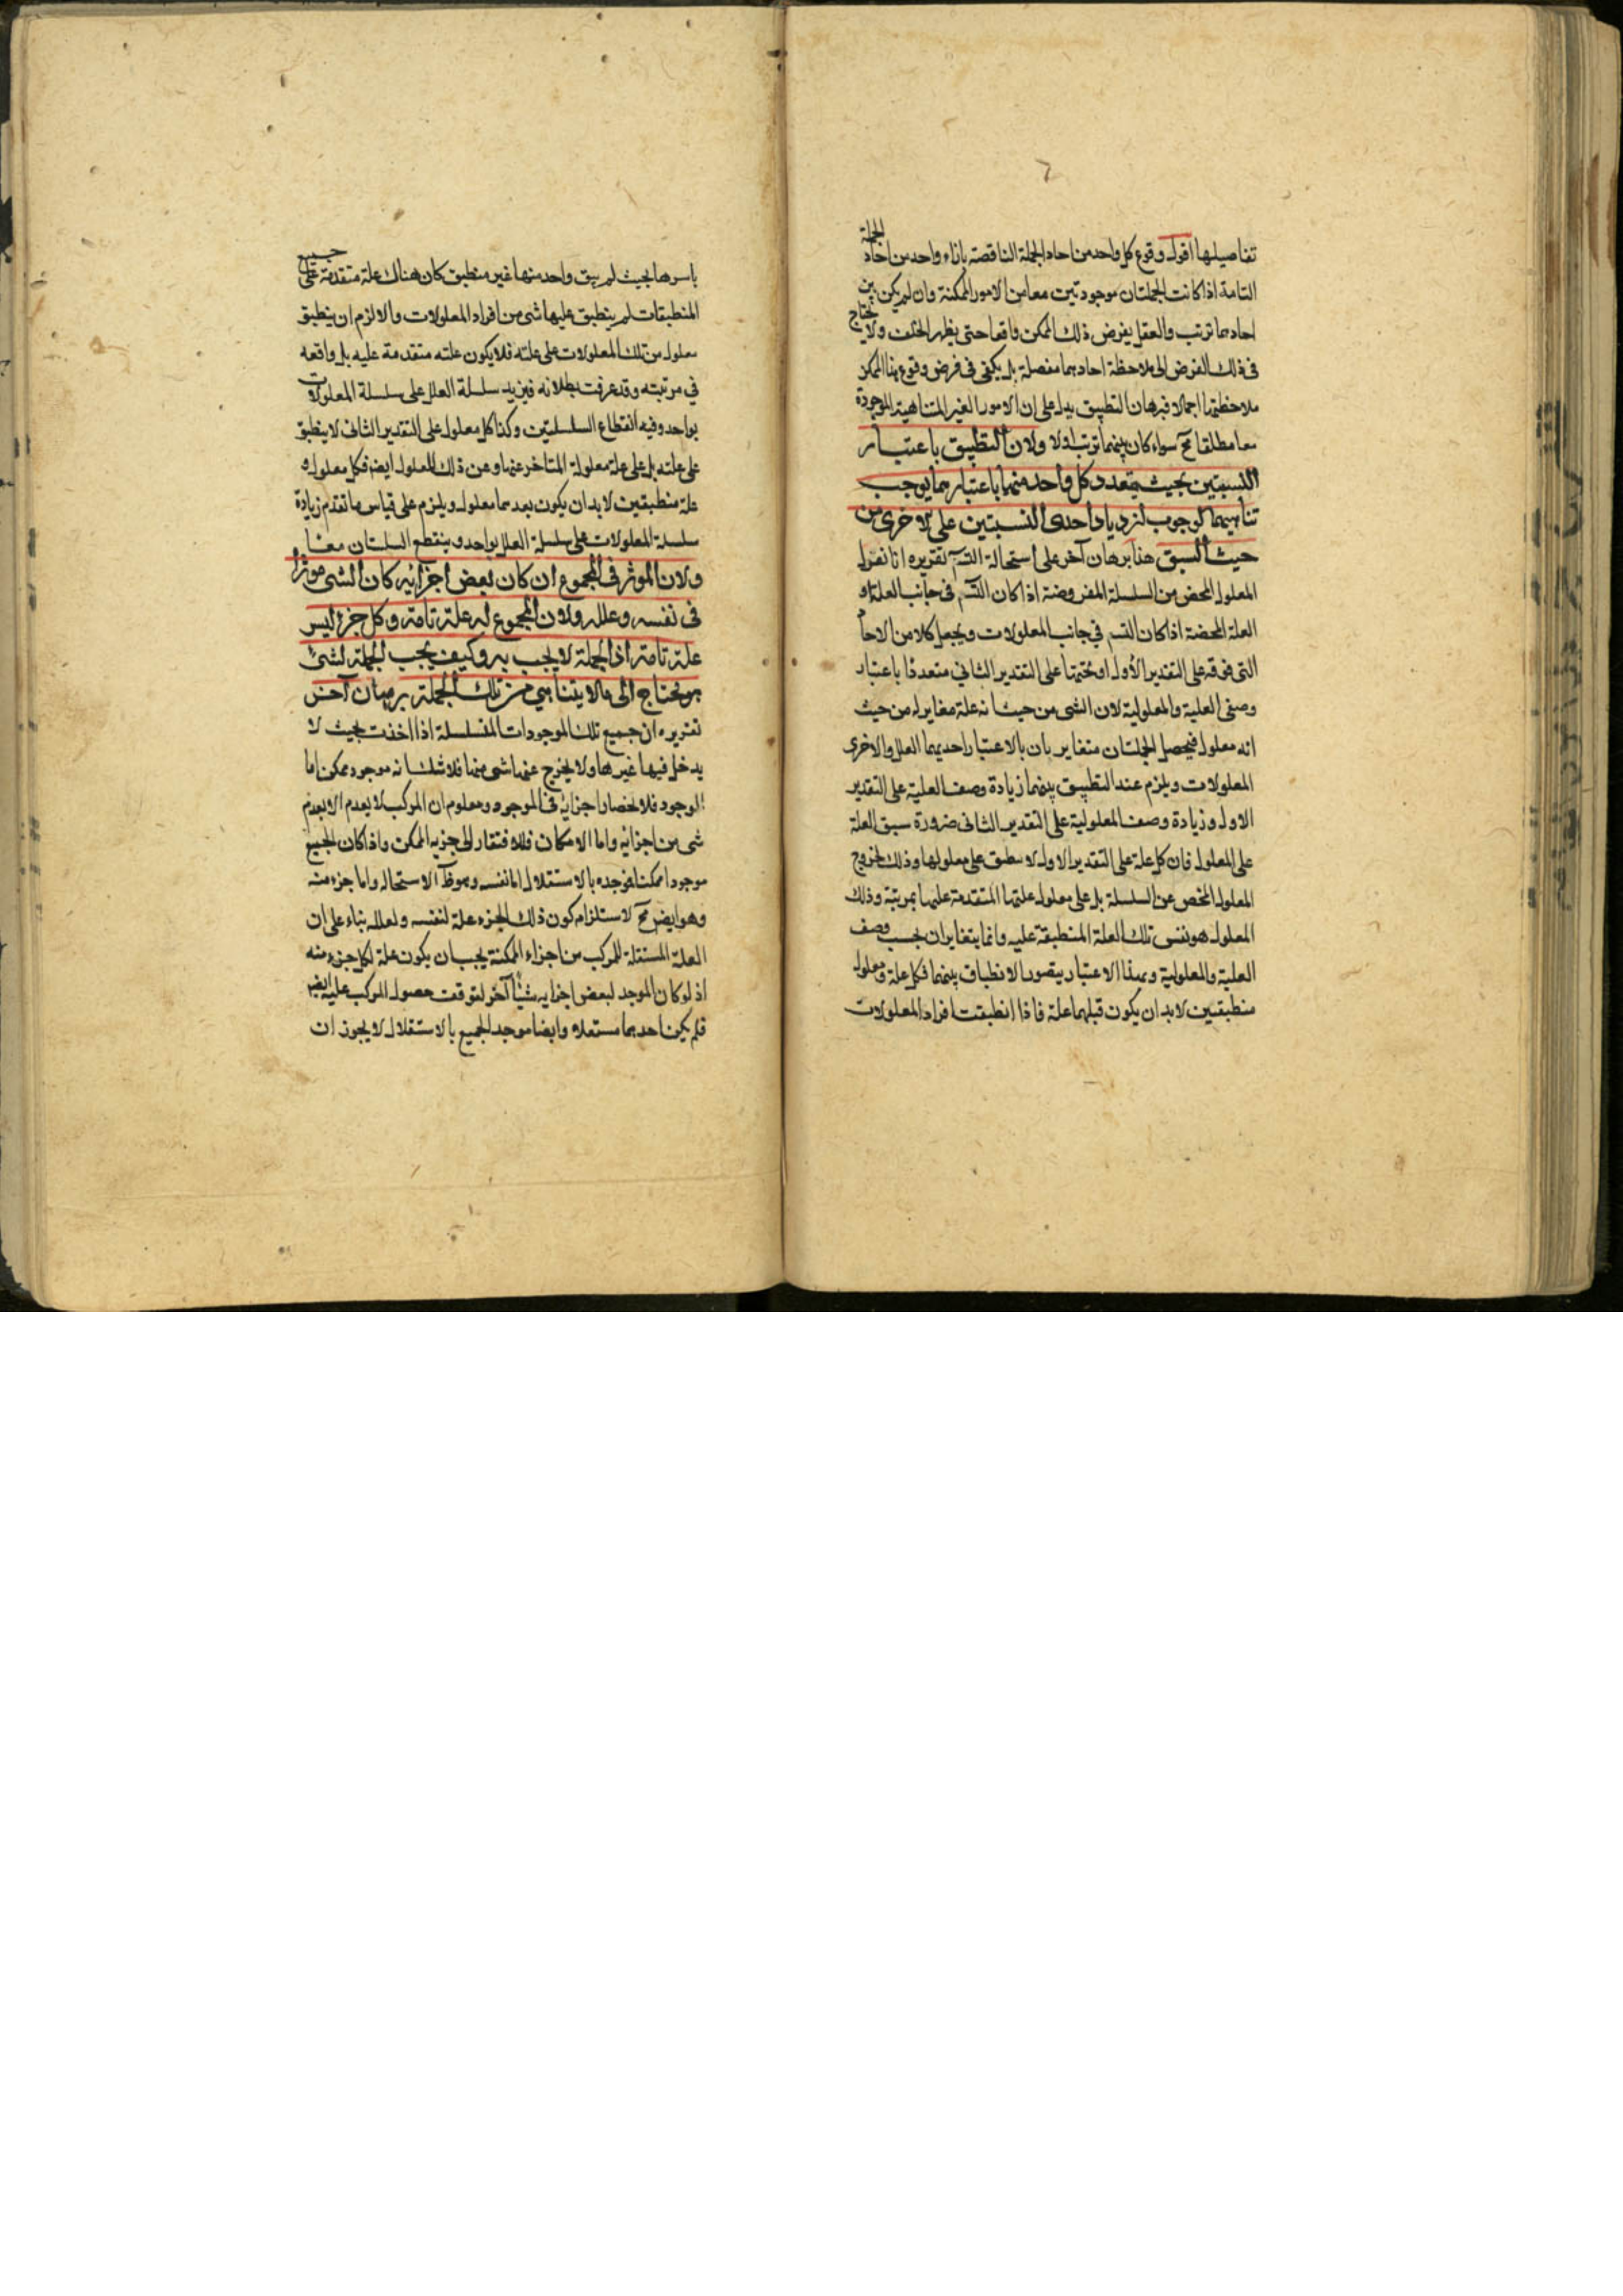 تفاصيلها اقول وقوع كل واحد من احاد الجملة الناقصة بازاء واحد من احاد الجملة
التامة اذا كانت الجملتان موجودتين معا من الامور الممكنة وان لم يكن بين
احادهما ترتب والعقل يفرض ذلك الممكن واقعا حتى يظهر الخلف ولا يحتاج
فى ذلك الفرض الى ملاحظة احادهما مفصلة بل يكفى فى فرض وقوع هذا الممكن
ملاحظتهما اجمالا فبرهان التطبيق يدل على ان الامور الغير المتناهية الموجودة
معا مطلقا مح سواء كان بينهما ترتب او لا ولان التطبيق باعتبار
النسبتين بحيث يتعدد كل واحد منهما باعتبارهما يوجب
تناهيهما لوجوب ازدياد احدى النسبتين على الاخرى من
حيث السبق هذا برهان آخر على استحالة التسـ تقريره انا نعزل
المعلول المحض من السلسلة المفروضة اذا كان التسـ فى جانب العلة او
العلة المحضة اذا كان التسـ فى جانب المعلولات ويجعل كلا من الاحاد
التى فوقه على التقدير الأول او تحتها على التقدير الثانى متعددا باعتبار
وصفى العلية والمعلولية لان الشى من حيث انه علة مغاير له من حيث
انه معلول فيحصل الجملتان متغايرتان بالاعتبار احديهما العلل والاخرى
المعلولات ويلزم عند التطبيق بينهما زيادة وصف العلية على التقدير
الاول وزيادة وصف المعلولية على التقدير الثانى ضرورة سبق العلة
على المعلول فان كل علة على التقدير الاول لا ينطبق على معلولها وذلك لخروج
المعلول المحض عن السلسلة بل على معلول علتها المتقدمة عليها بمرتبة وذلك
المعلول هو نفس تلك العلة المنطبقة عليه وانما يتغايران بحسب وصف
العلية والمعلولية وبهذا الاعتبار يتصور الانطباق بينهما فكل علة ومعلول
منطبقين لابد ان يكون قبلهما علة فاذا انطبقت افراد المعلولات
باسرها بحيث لم يبق واحد منها غير منطبق كان هناك علة متقدمة على جميع
المنطبقات لم ينطبق عليها شى من افراد المعلولات والا لزم ان ينطبق
معلول من تلك المعلولات على علته فلا يكون علته متقدمة عليه بل واقعة
فى مرتبته وقد عرفت بطلانه فيزيد سلسلة العلل على سلسلة المعلولات
بواحد وفيه انقطاع السلسلتين وكذا كل معلول على التقدير الثانى لا ينطبق
على علته بل على علة معلولة المتاخر عنها وعن ذلك المعلول ايضا فكل معلول و
علة منطبقتين لابد ان يكون بعدهما معلول ويلزم على قياس ما تقدم زيادة
سلسلة المعلولات على سلسلة العلل بواحد وينقطع السلستان معا
ولان المؤثر فى المجموع ان كان بعض اجزائه كان الشى موثرا
فى نفسه وعلله ولان المجموع له علة تامة وكل جزء ليس
علة تامة اذ الجملة لا يجب به وكيف يجب الجملة بشئ
هو محتاج الى ما لا يتناهى من تلك الجملة برهان آخر
تقريره ان جميع تلك الموجودات المتسلسلة اذا اخذت بحيث لا
يدخل فيها غيرها ولا يخرج عنها شى منها فلا شك انه موجود ممكن اما
الوجود فلانحصار اجزائه فى الموجود ومعلوم ان المركب لا يعدم الا بعدم
شى من اجزائه واما الامكان فللافتقار الى جزيه الممكن واذا كان الجميع
موجودا ممكنا فموجده بالاستقلال اما نفسه وهو ظ الاستحالة واما جزء منه
وهو ايض مح لاستلزام كون ذلك الجزء علة لنفسه ولعلله بناء على ان
العلة المستقلة للمركب من اجزاء الممكنة يجب ان يكون علة لكل جزء منه
اذ لو كان الموجد لبعض اجزايه شيئا آخر لتوقفت حصول المركب عليه ايض
فلم يكن احدهما مستقلا وايضا موجد الجميع بالاستقلال لا يجوز ان